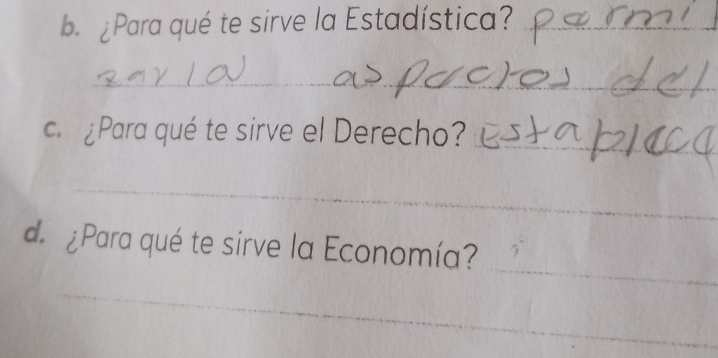 b. ¿Para qué te sirve la Estadística? parmi
aspectos del
c. ¿Para qué te sirve el Derecho? Establece
d. ¿Para qué te sirve la Economía?